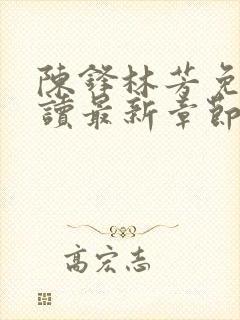 陳鋒林芳免
讀最新章節
高宏志